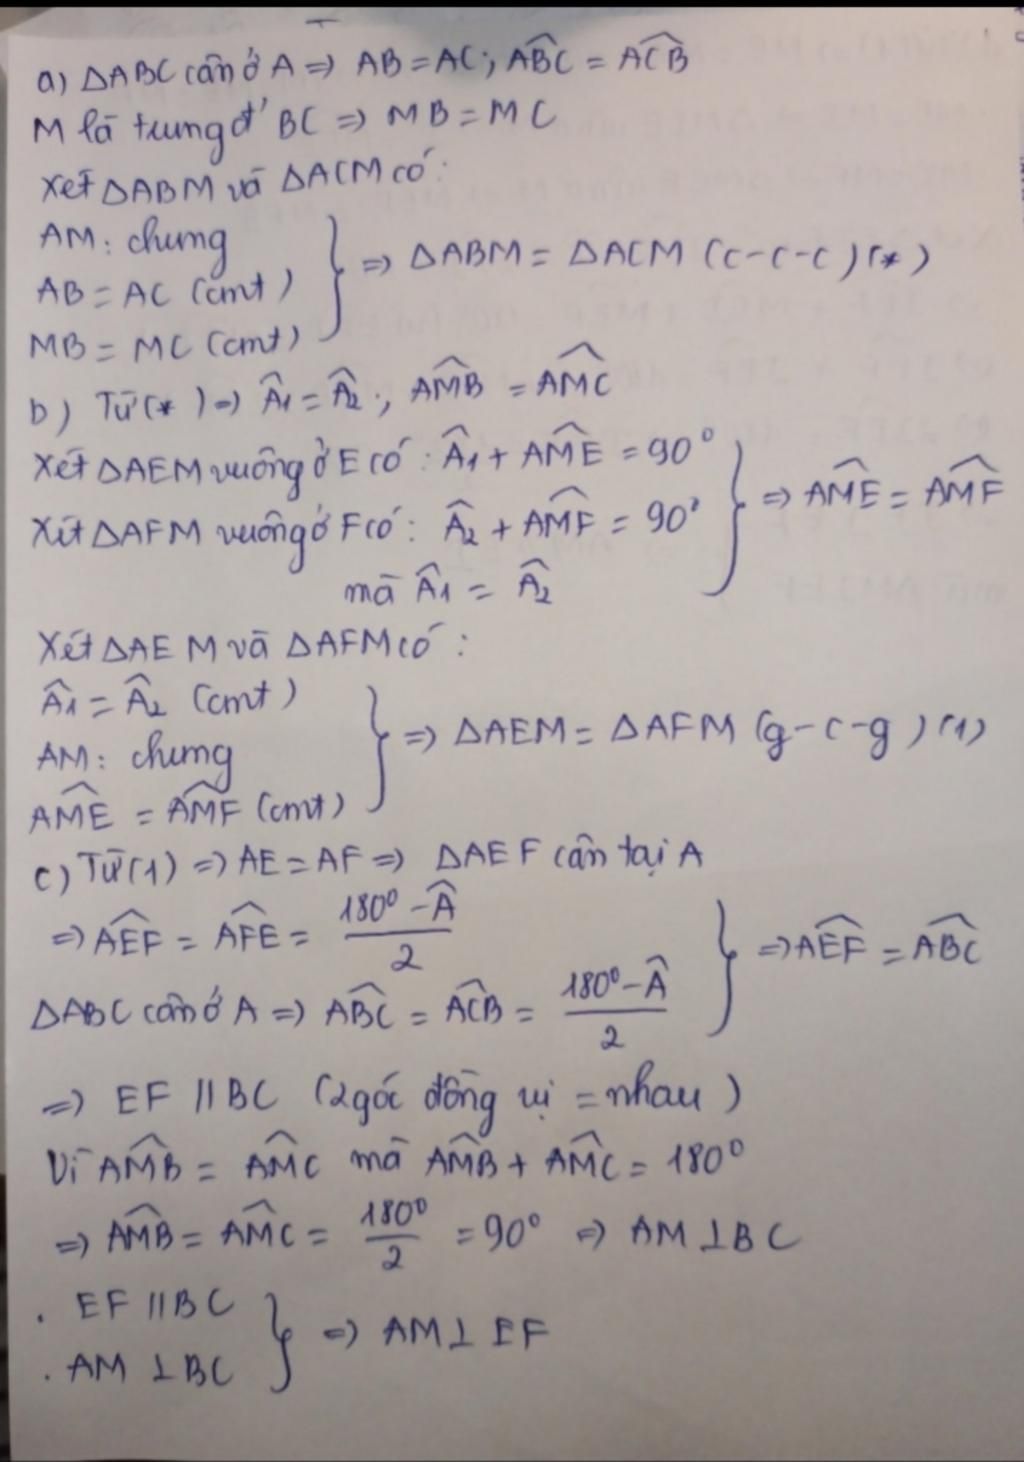 a) ΔABC cân ở A ⇒ AB = AC; ∠ABC = ∠ACB
M là trung đ' BC ⇒ MB = MC
Xét ΔABM và ΔACM có:
AM: chung
AB = AC (cmt)
MB = MC (cmt)
} ⇒ ΔABM = ΔACM (c-c-c) (*)
b) Từ (*) ⇒ Â1 = Â2; ∠AMB = ∠AMC
Xét ΔAEM vuông ở E có: Â1 + ∠AME = 90°
Xét ΔAFM vuông ở F có: Â2 + ∠AMF = 90°
mà Â1 = Â2
} ⇒ ∠AME = ∠AMF
Xét ΔAEM và ΔAFM có:
Â1 = Â2 (cmt)
AM: chung
∠AME = ∠AMF (cmt)
} ⇒ ΔAEM = ΔAFM (g-c-g) (1)
c) Từ (1) ⇒ AE = AF ⇒ ΔAEF cân tại A
⇒ ∠AEF = ∠AFE = (180° - Â)/2
ΔABC cân ở A ⇒ ∠ABC = ∠ACB = (180° - Â)/2
} ⇒ ∠AEF = ∠ABC
⇒ EF // BC (2 góc đồng vị = nhau)
Vì ∠AMB = ∠AMC mà ∠AMB + ∠AMC = 180°
⇒ ∠AMB = ∠AMC = 180°/2 = 90° ⇒ AM ⊥ BC
. EF // BC
. AM ⊥ BC
} ⇒ AM ⊥ EF